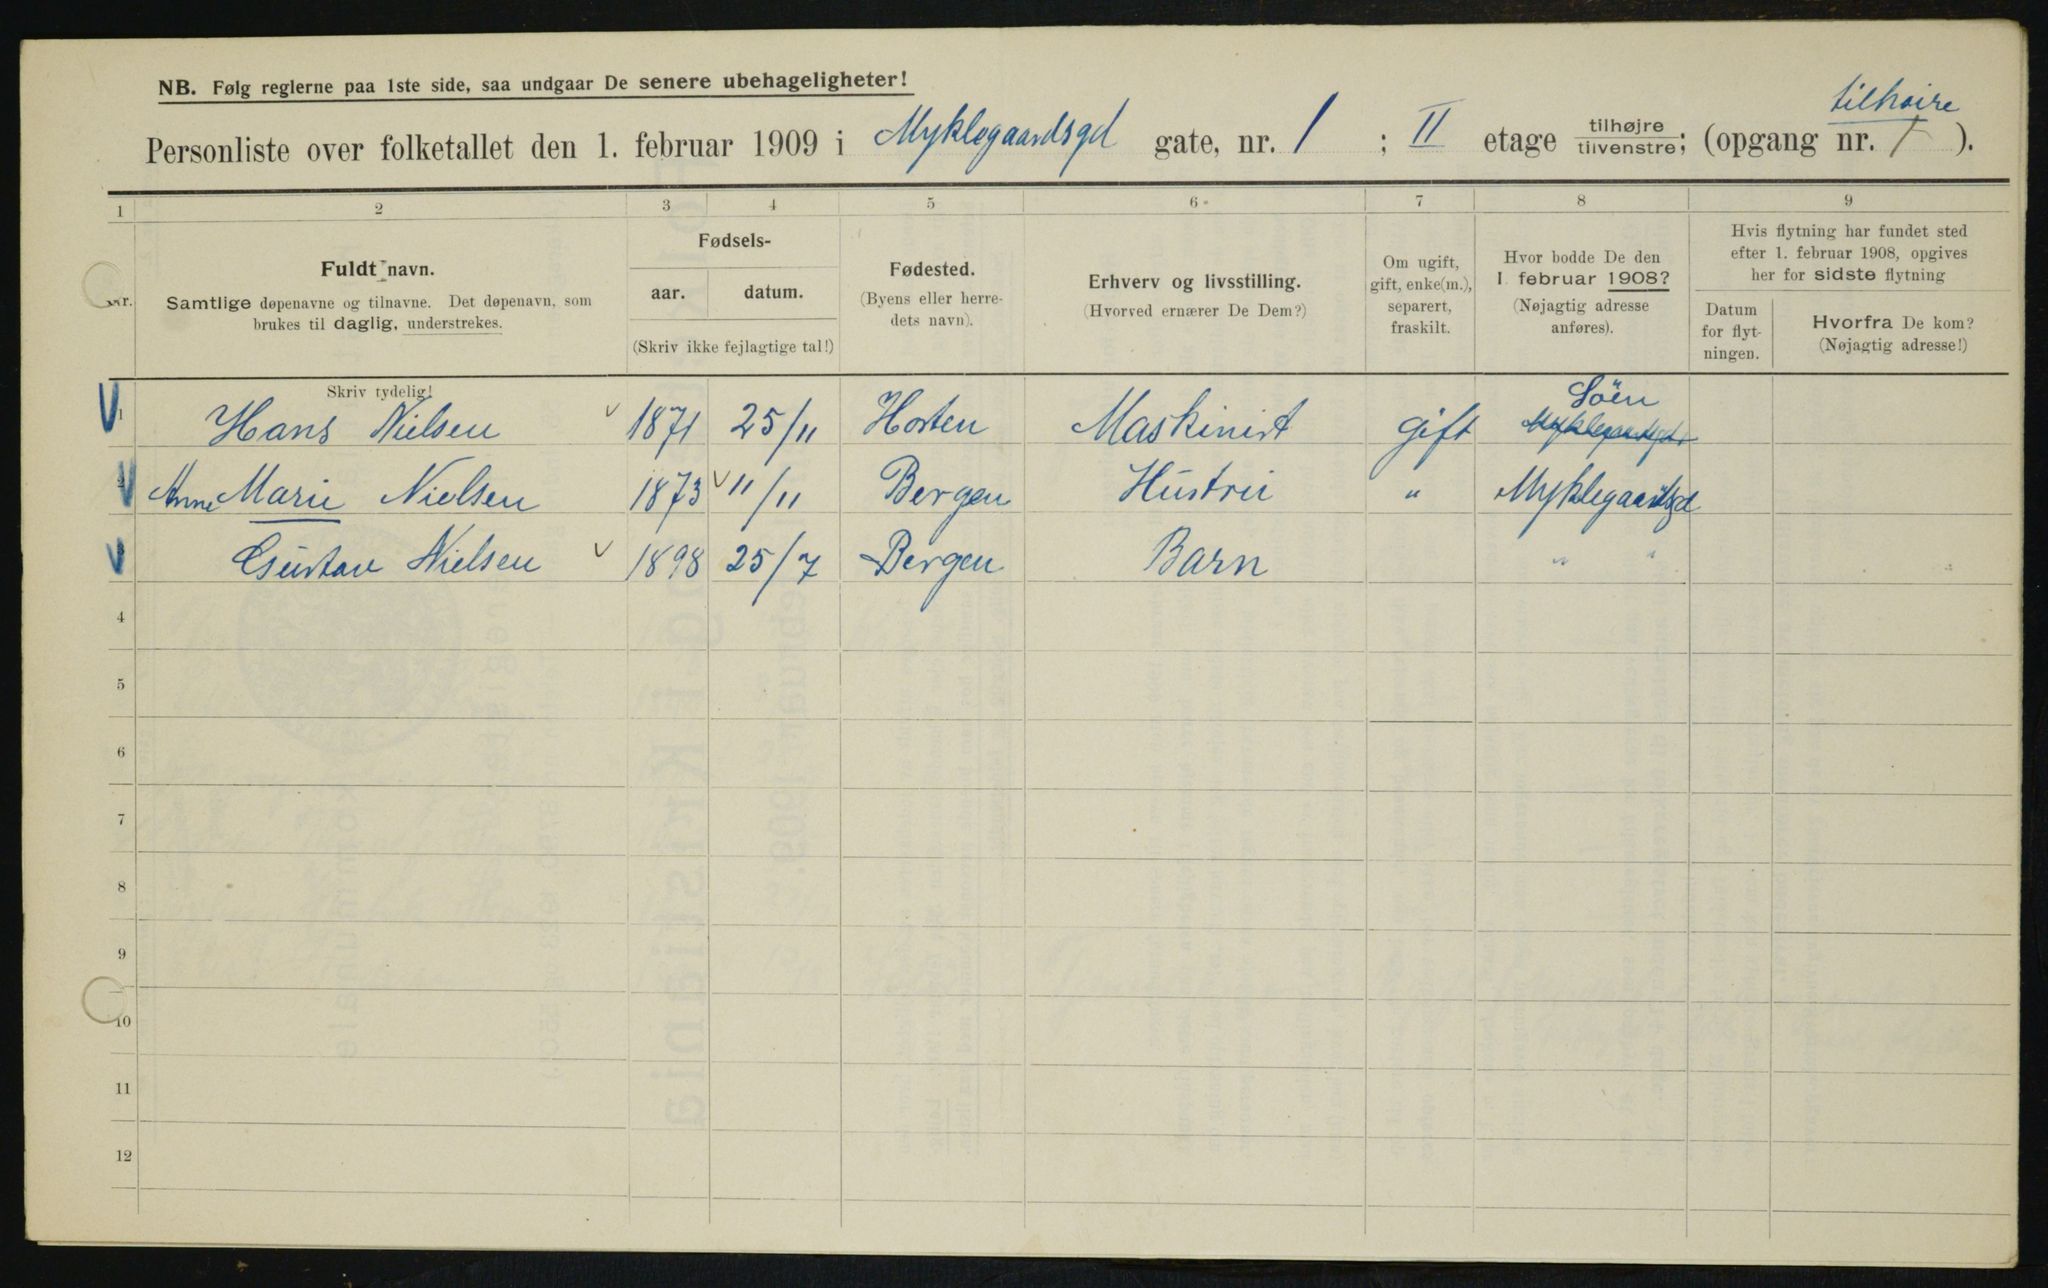 NB. Følg reglerne paa 1ste side, saa undgaar De senere ubehageligheter!
tilhøire
Personliste over folketallet den 1. februar 1909 i Myklegaardsgd gate, nr. 1 ; II etage tilhøjre tilvenstre; (opgang nr. 1 ).
1 2 3 4 5 6 7 8 9
Nr.
Fuldt navn.
Samtlige døpenavne og tilnavne. Det døpenavn, som
brukes til daglig, understrekes.
Fødsels-
aar. datum.
(Skriv ikke fejlagtige tal!)
Fødested.
(Byens eller herre-
dets navn).
Erhverv og livsstilling.
(Hvorved ernærer De Dem?)
Om ugift,
gift, enke(m.),
separert,
fraskilt.
Hvor bodde De den
1. februar 1908?
(Nøjagtig adresse
anføres).
Hvis flytning har fundet sted
efter 1. februar 1908, opgives
her for sidste flytning
Datum
for flyt-
ningen.
Hvorfra De kom?
(Nøjagtig adresse!)
Skriv tydelig!
Söen
1 Hans Nielsen 1871 25/11 Horten Maskinist gift Myklegaardsgd
2 Anne Marie Nielsen 1873 11/11 Bergen Hustru " Myklegaardsgd
3 Gustav Nielsen 1898 25/7 Bergen Barn " "
4
5
6
7
8
9
10
11
12